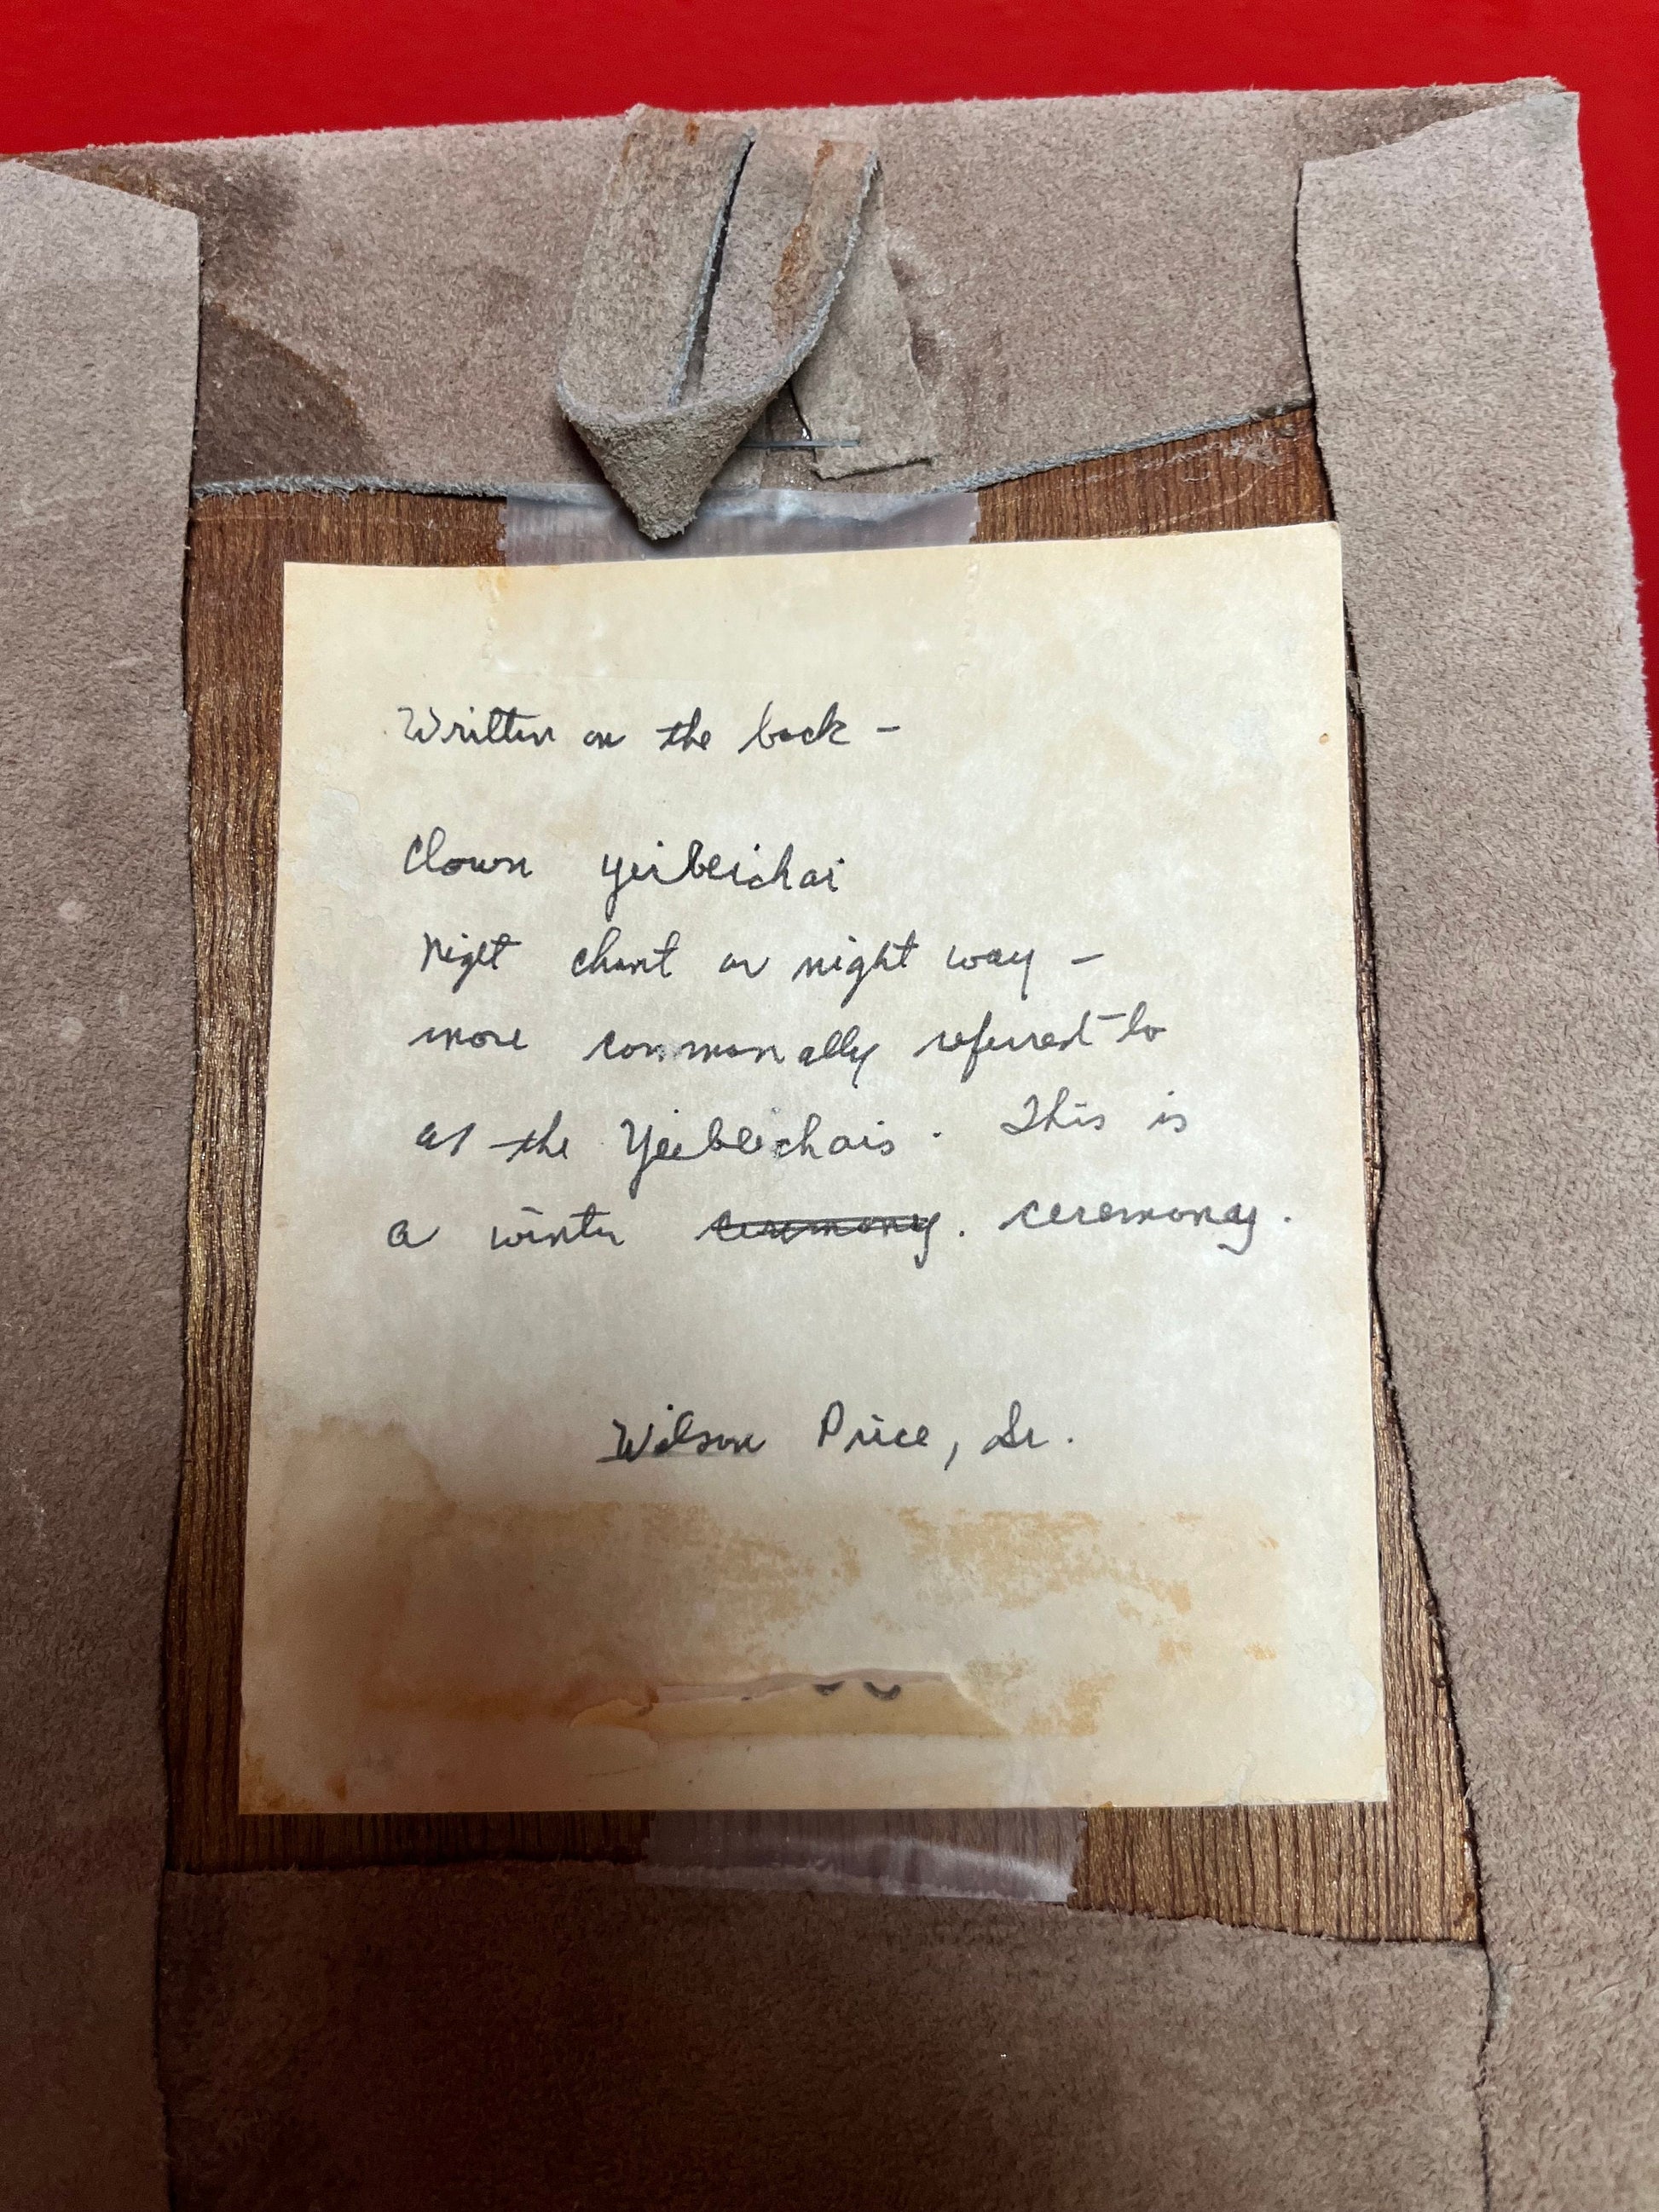 Written on the back -
Clown yeibeichai
Night chant or night way -
more commonally referred to
as the Yeibeichais. This is
a winter ceremony. ceremony.
Wilson Price, Sr.